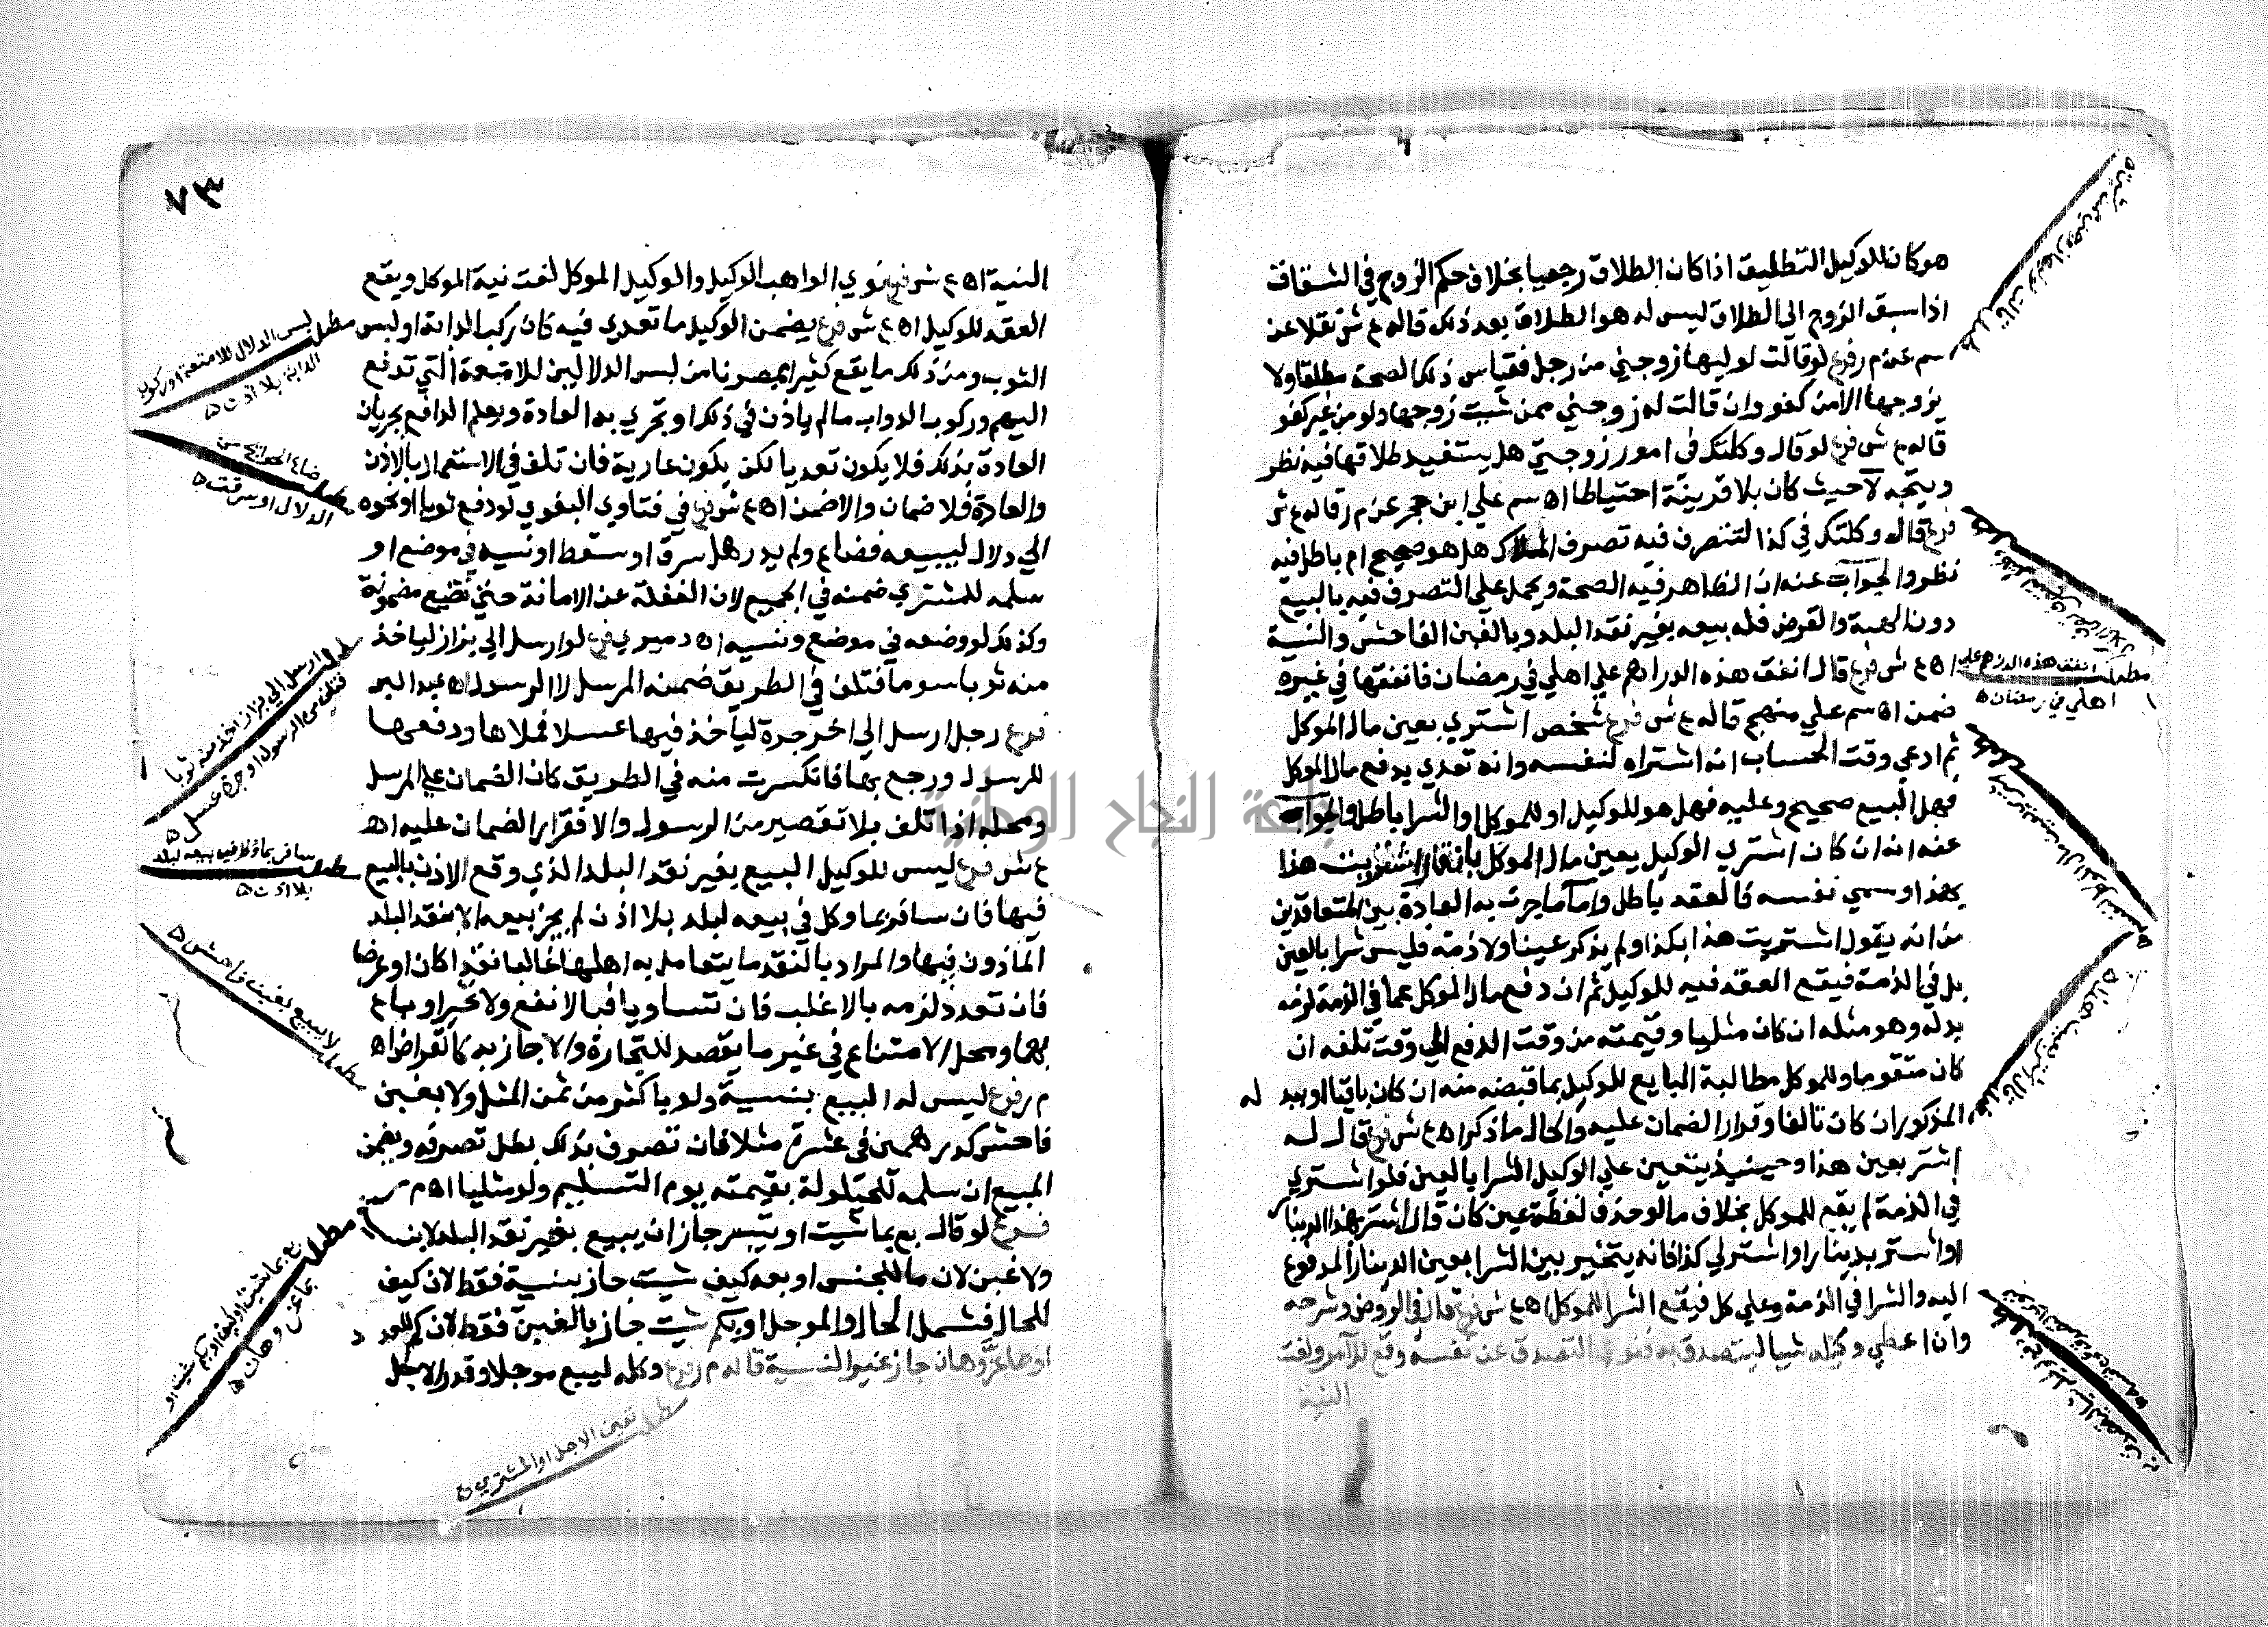 هو كان للوكيل التطليق اذا كان الطلاق رجعيا بخلاف حكم الزوج في الشقاق
اذا سبق الزوج الى الطلاق ليس له هو الطلاق بعد ذلك قاله ع ش نقلا عن
سم عن م ر فرع لو قالت لوليها زوجني من رجل فقياس ذلك الصحة مطلقا ولا
يزوجها الا من كفو وان قالت له زوجني ممن شيت زوجها ولو من غير كفو
قاله ع ش فرع لو قال وكلتك في امور زوجتي هل يستفيد طلاقها فيه نظر
ويتجه لا حيث كان بلا قرينة احتياطا اه سم على ابن حجر عن م ر قاله ع ش
فرع قال وكلتك في كذا لتتصرف فيه تصرف الملاك هل هو صحيح ام باطل فيه
نظر والجواب عنه ان الظاهر فيه الصحة ويحمل على التصرف فيه بالبيع
دون الهبة والقرض فله بيعه بغير نقد البلد وبالغبن الفاحش والنسية
اه ع ش فرع قال انفق هذه الدراهم على اهلي في رمضان فانفقها في غيره
ضمن اه سم على منهج قاله ع ش فرع شخص اشتري بعين مال الموكل
ثم ادعي وقت الحساب انه اشتراه لنفسه وانه تعدي بدفع مال الموكل
فهل البيع صحيح وعليه فهل هو للوكيل او للموكل او الشرا باطل والجواب
عنه انه ان كان اشتري الوكيل بعين مال الموكل بان قال اشتريت هذا
بهذا وسمي نفسه فالعقد باطل واما ما جرت به العادة بين المتعاقدين
من انه يقول اشتريت هذا بكذا ولم يذكر عينا ولا ذمة فليس شرا بالعين
بل في الذمة فيقع العقد فيه للوكيل ثم ان دفع مال الموكل عما في الذمة لزمه
بدله وهو مثله ان كان مثليا وقيمته من وقت الدفع الى وقت تلفه ان
كان متقوما وللموكل مطالبة البايع للوكيل بما قبضه منه ان كان باقيا او ببد له
المذكور ان كان تالفا وقرار الضمان عليه والحال ما ذكر اه ع ش فرع قال له
إشتر بعين هذا وحينيذ يتعين على الوكيل الشرا بالعين فلو اشتري
في الذمة لم يقع للموكل بخلاف ما لو حذف لفظة عين كان قال اشتر بهذا الدينار
او اشتر بدينار او اشتر لي كذا فانه يتخير بين الشرا بعين الدينار المدفوع
اليه والشرا في الذمة وعلى كل فيقع الشرا للموكل اه ع ش فرع قال في الروض وشرحه
وان اعطي وكيله شيا ليتصدق به فنوي التصدق عن نفسه وقع للآمر ولغت
النية
مطلب انفق هذه الدراهم على
اهلي في رمضان ه
٧٣
النية اه ع ش فرع نوي الواهب الوكيل والوكيل الموكل لغت نية الموكل ويقع
العقد للوكيل اه ع ش فرع يضمن الوكيل ما تعدي فيه كان ركب الدابة او لبس
الثوب ومن ذلك ما يقع كثيرا بمصرنا من لبس الدلالين للامتعة التي تدفع
اليهم وركوب الدواب ما لم ياذن في ذلك او تجري به العادة ويعلم الدافع بجريان
العادة بذلك فلا يكون تعديا لكن يكون عارية فان تلف في الاستعمال بالاذن
والعادة فلا ضمان والا ضمن اه ع ش فرع في فتاوي البغوي لو دفع ثوبا او نحوه
الى دلال ليبيعه فضاع ولم يدر هل سرق او سقط او نسيه في موضع او
سلمه للمشتري ضمنه في الجميع لان الغفلة عن الامانة حتى تضيع مضمونة
وكذلك لو وضعه في موضع ونسيه اه دميري فرع لو ارسل الى بزاز لياخذ
منه ثوبا سوما فتلف في الطريق ضمنه المرسل لا الرسول اه عبد البر
فرع رجل ارسل الى اخر جرة لياخذ فيها عسلا فملاها ودفعها
للرسول ورجع بها فانكسرت منه في الطريق كان الضمان على المرسل
ومحله اذا تلف بلا تقصير من الرسول والا فقرار الضمان عليه اه
ع ش فرع ليس للوكيل البيع بغير نقد البلد الذي وقع الاذن بالبيع
فيها فان سافر بما وكل في بيعه لبلد بلا اذن لم يجز بيعه الا بنقد البلد
الماذون فيها والمراد بالنقد ما يتعامل به اهلها غالبا نقدا كان او عرضا
فان تعدد لزمه بالاغلب فان تساويا فبالانفع والا تخير او باع
بهما ومحل الامتناع في غير ما يقصد للتجارة والا جاز به كالقراض اه
م ر فرع ليس له البيع بنسية ولو باكثر من ثمن المثل ولا بغبن
فاحش كدرهمين في عشرة مثلا فان تصرف بذلك بطل تصرفه ويضمن
المبيع ان سلمه للحيلولة بقيمته يوم التسليم ولو مثليا اه م ر
فرع لو قال بع بما شيت او تيسر جاز ان يبيع بغير نقد البلد لا بنسية
ولا غبن لان ما للجنس او بعه كيف شيت جاز بنسية فقط لان كيف
للحال فشمل الحال والموجل او بكم شيت جاز بالغبن فقط لان كم للعدد
او بما عز وهان جاز غير النسية قاله م ر فرع وكله ليبيع موجلا وقدر الاجل
مطلب لبس الدلال للامتعة او ركوب
الدابة بلا اذن ه
مطلب ضاع المبيع من
الدلال او سرقت ه
مطلب ارسل الى بزاز اخذ منه ثوبا
فتلف من الرسول او جرة عسل ه
مطلب سافر بما وكل فيه بيعه لبلد
بلا اذن ه
مطلب لا يبيع بغبن فاحش ه
مطلب بع بما شيت او كيف او بكم شيت او
بما عز وهان ه
مطلب تعين الاجل او المشتري
جامعة النجاح الوطنية